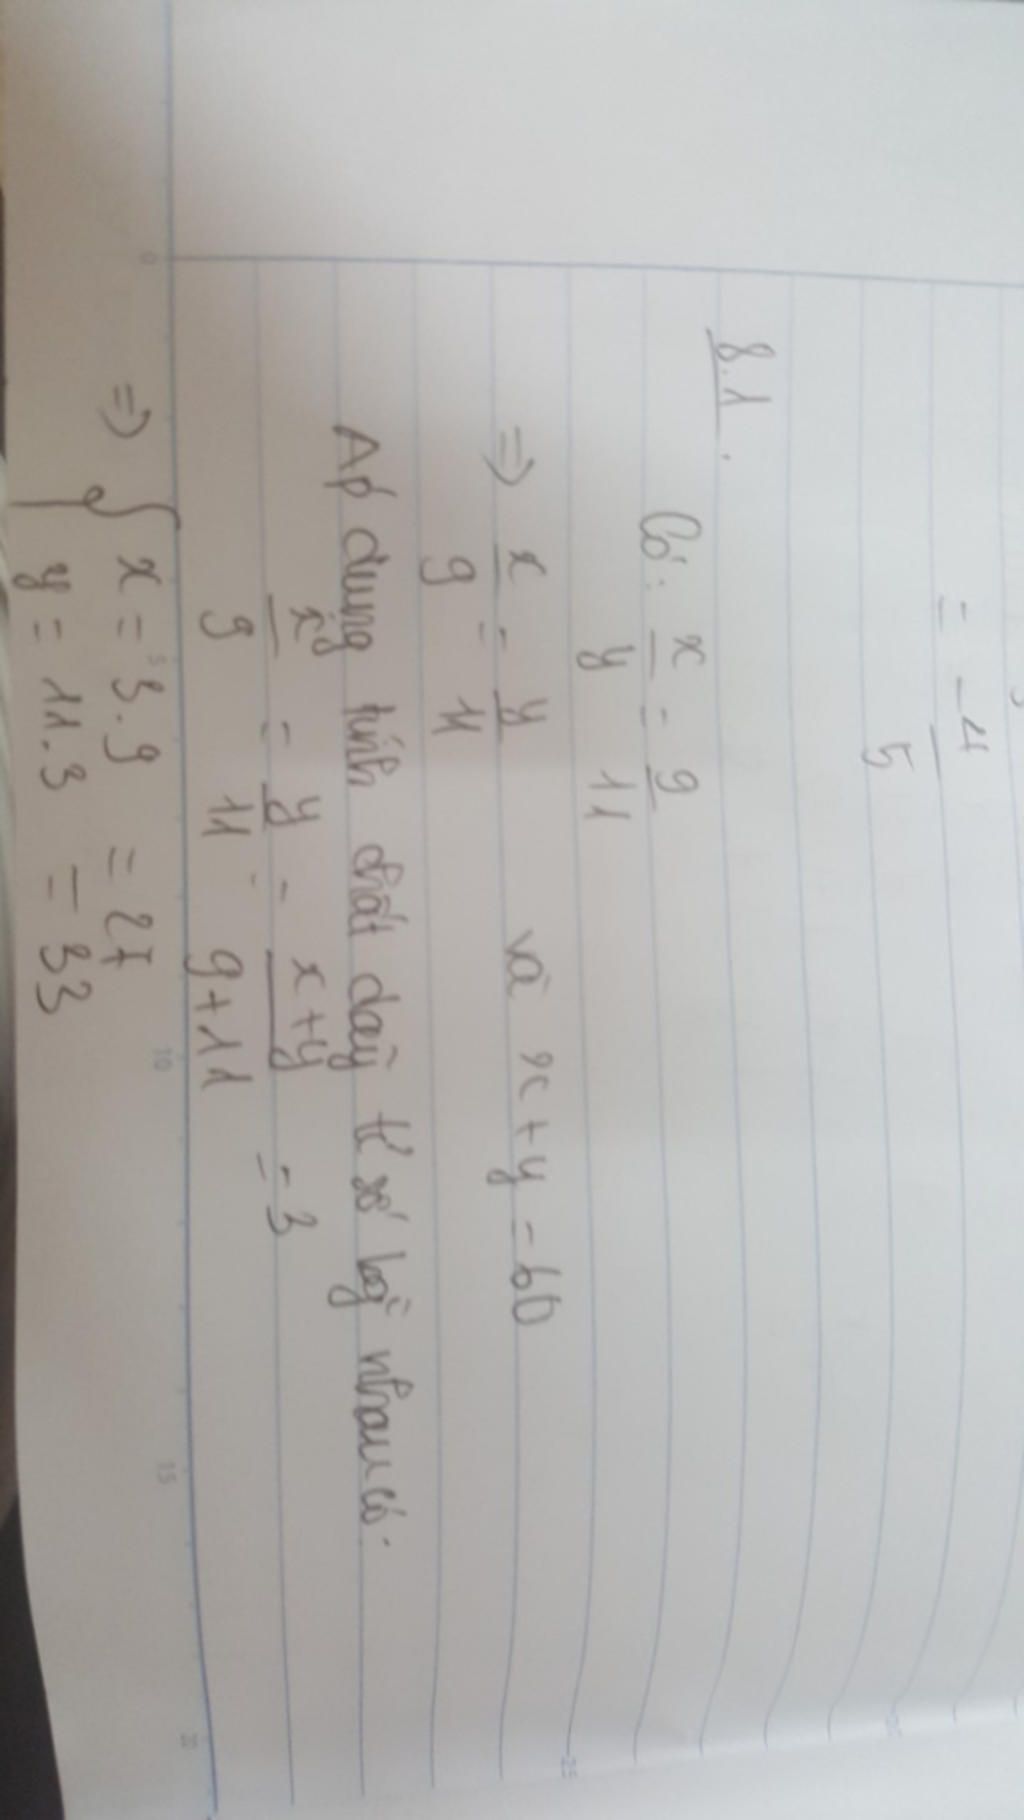 = -4/5
8.1.
Có: x/y = 9/11
=> x/9 = y/11 và x+y=60
Áp dụng tính chất dãy tỉ số bằng nhau có:
x/9 = y/11 = x+y/9+11 = 3
=> { x = 3.9 = 27
y = 11.3 = 33